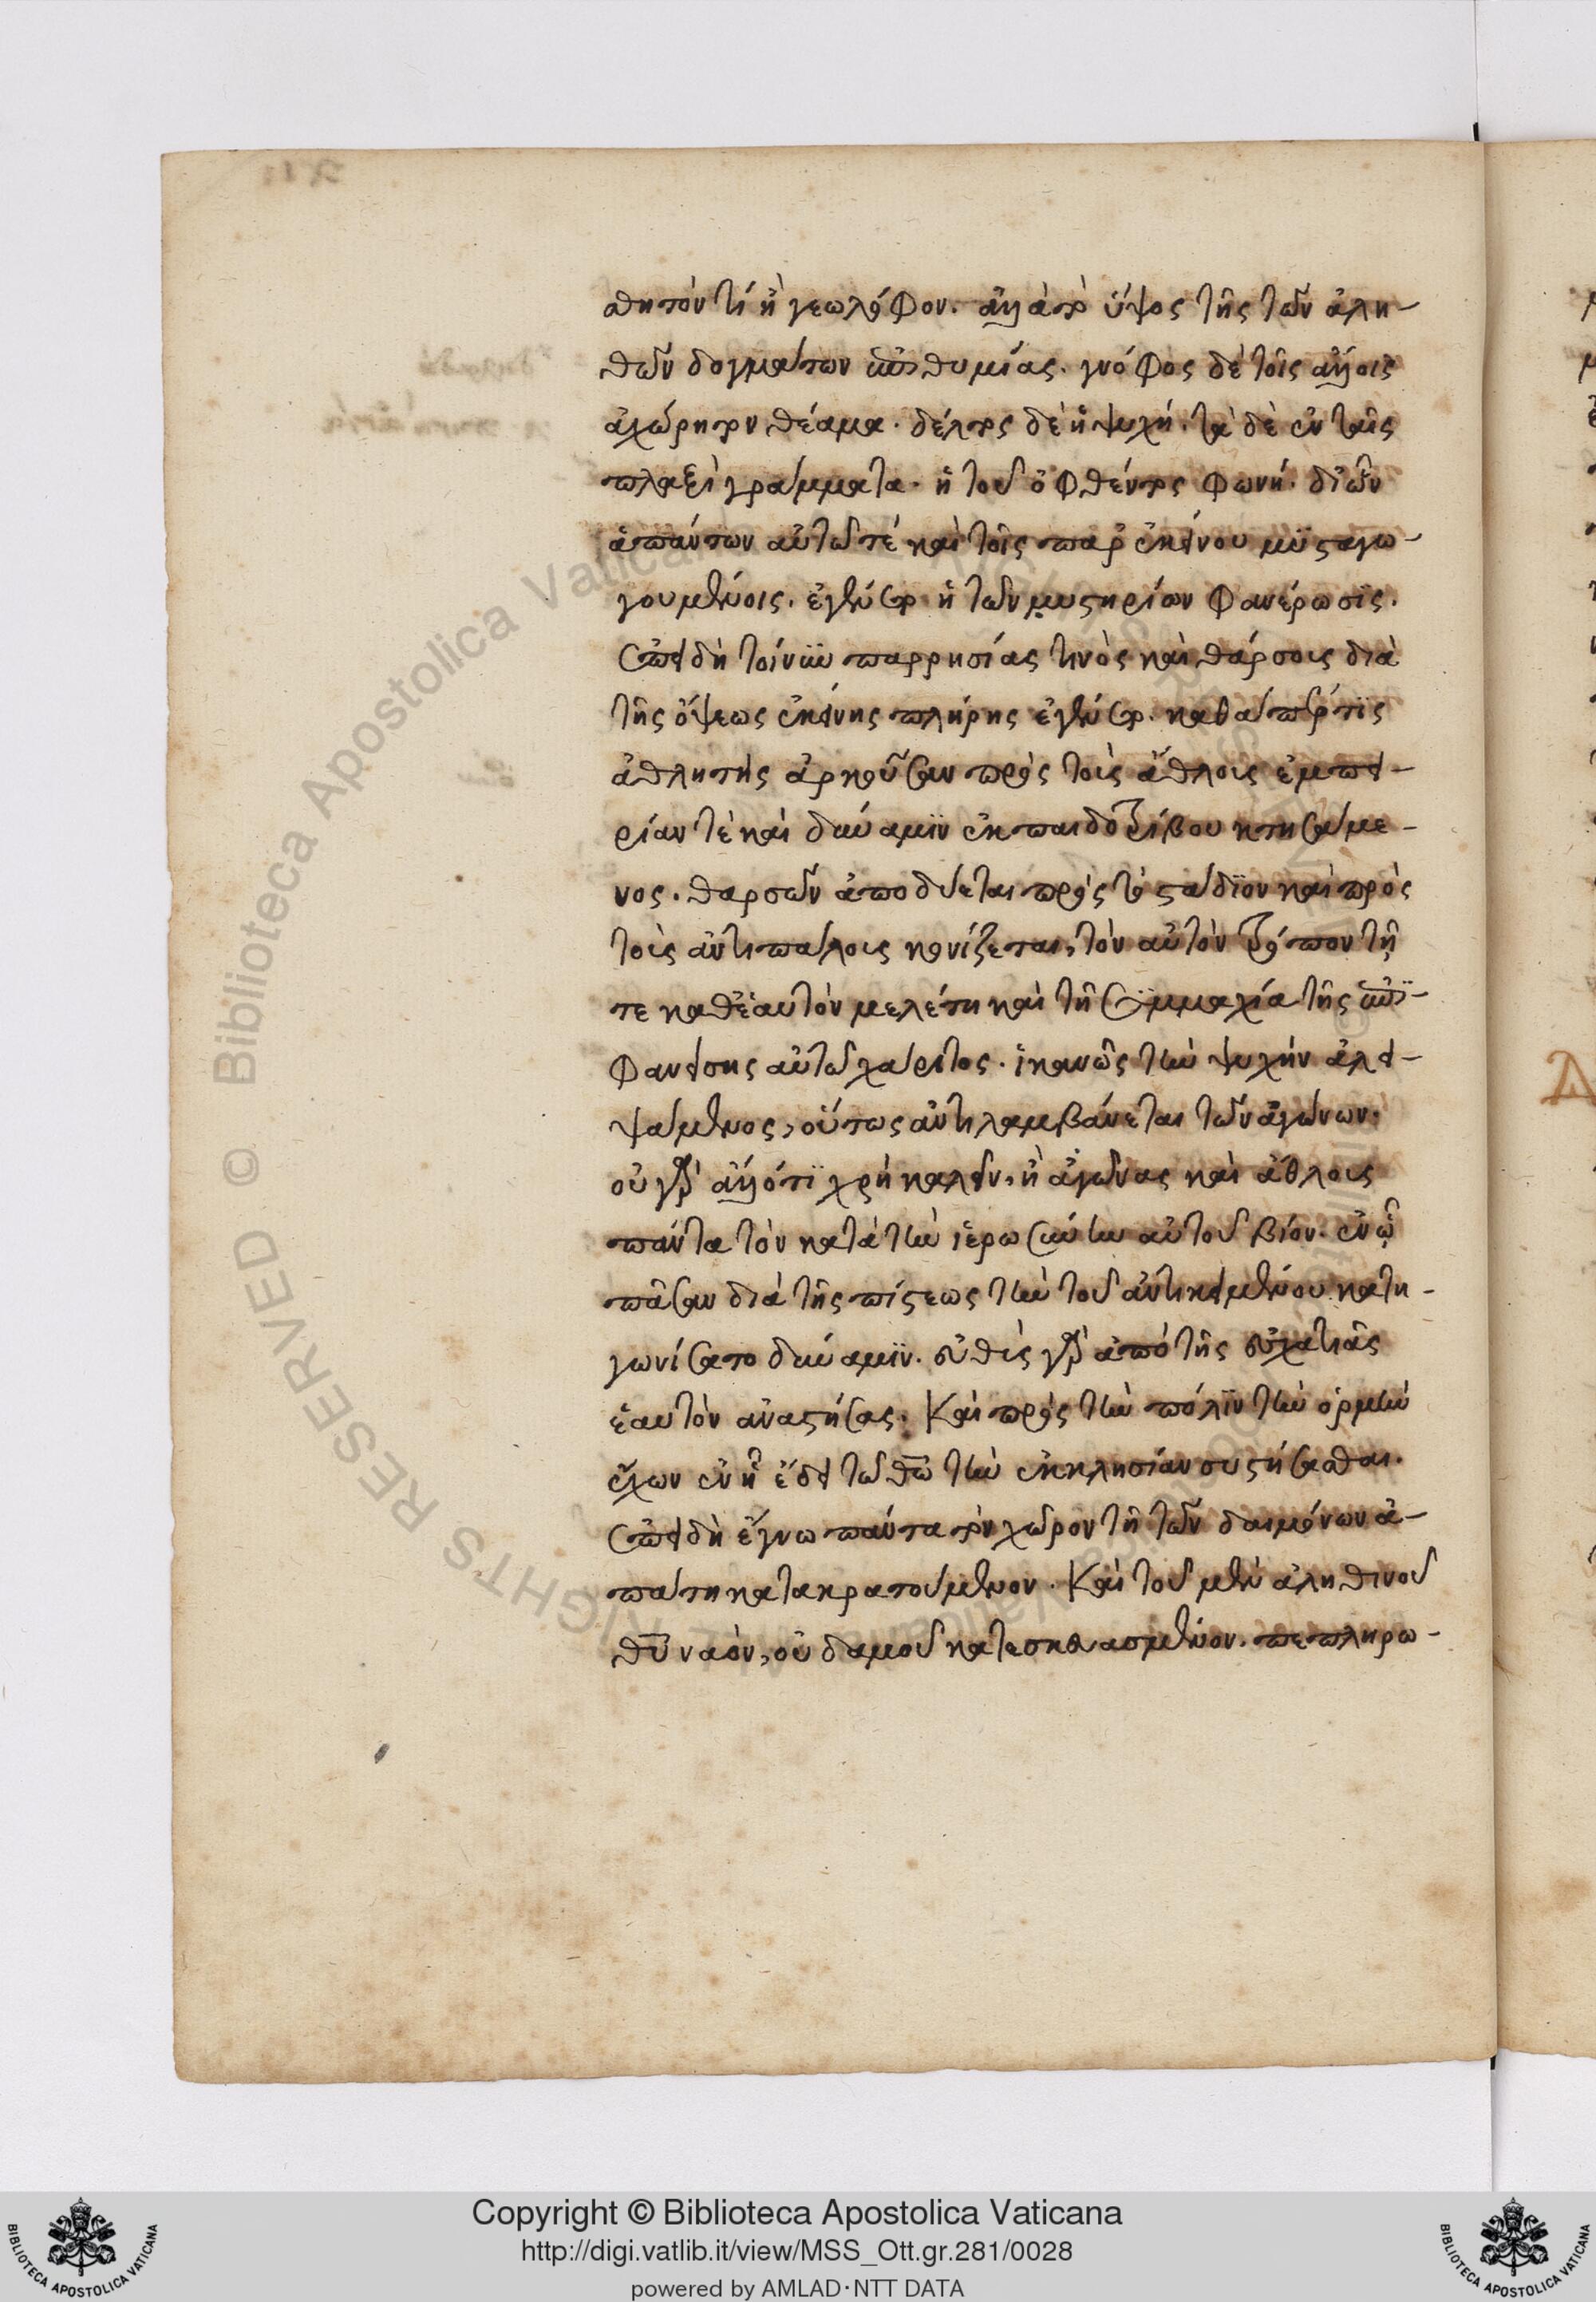 σθητόν τι ἢ γεώλοφον. ἀλλὰ τὸ ὕψος τῆς τῶν ἀλη-
θῶν δογμάτων ἐπιθυμίας. γνόφος δὲ τοῖς ἄλλοις
ἀχώρητον θέαμα. δέλτος δὲ ἡ ψυχή. τὰ δὲ ἐν ταῖς
πλαξὶ γράμματα. ἡ τοῦ ὀφθέντος φωνή. δι' ὧν
ἁπάντων αὐτῶ τέ καὶ τοῖς παρ' ἐκείνου μϋσταγω-
γουμένοις. ἐγένετο ἡ τῶν μυστηρίων φανέρωσϊς.
ἐπεὶ δὴ τοίνϋν παρρησίας τινὸς καὶ θάρσους διὰ
τῆς ὄψεως ἐκείνης πλήρης ἐγένετο. καθάπερ τϊς
ἀθλητὴς ἀρκοῦσαν πρὸς τοὺς ἄθλους ἐμπει-
ρίαν τὲ καὶ δύναμϊν ἐκ παιδοτρίβου κτησάμε-
νος. θαρσῶν ἀποδύεται πρὸς τὸ στάδϊον καὶ πρὸς
τοὺς ἀντιπάλους κονίζεται, τὸν αὐτὸν τρόπον τῆ
τε καθ' ἑαυτὸν μελέτη καὶ τῆ σϋμμαχία τῆς ἐπϊ-
φανείσης αὐτῶ χάριτος. ἱκανῶς τὴν ψυχὴν ἀλει-
ψάμενος, οὕτως ἀντιλαμβάνεται τῶν ἀγώνων.
οὐ γὰρ ἄλλό τϊ χρὴ καλεῖν, ἢ ἀγῶνας καὶ ἄθλους
πάντα τὸν κατὰ τὴν ἱερωσύνην αὐτοῦ βίον. ἐν ᾧ
πᾶσαν διὰ τῆς πίστεως τὴν τοῦ ἀντικειμένου κατη-
γωνίσατο δύναμϊν. εὐθὺς γὰρ ἀπὸ τῆς ἐσχατιᾶς
ἑαυτὸν ἀναστήσας. Καὶ πρὸς τὴν πόλϊν τὴν ὁρμὴν
ἔχων ἐν ᾗ ἔδει τῶ θ̅ω̅ τὴν ἐκκλησίαν συστήσασθαι.
ἐπεὶ δὴ ἔγνω πάντα τὸν χῶρον τῆ τῶν δαιμόνων ἀ-
πάτη κατακρατούμενον. Καὶ τοῦ μὲν ἀληθινοῦ
θ̅υ̅ ναὸν, οὐδαμοῦ κατεσκευασμένον. πεπληρω-
Copyright © Biblioteca Apostolica Vaticana
http://digi.vatlib.it/view/MSS_Ott.gr.281/0028
powered by AMLAD·NTT DATA